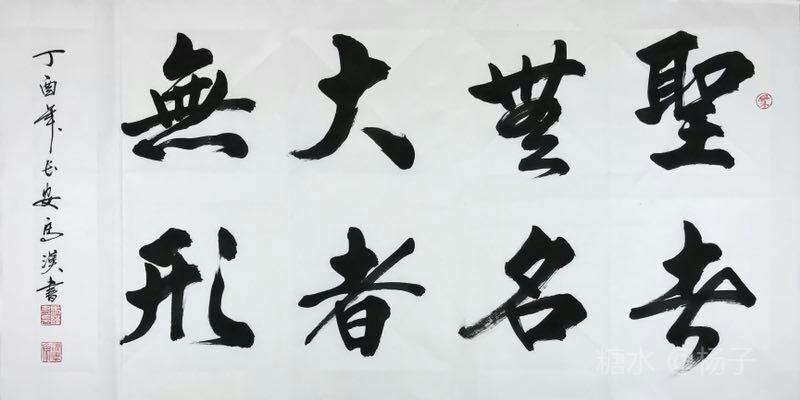 聖者
無名
大者
無形
丁酉年长安高漢書
糖水@杨子